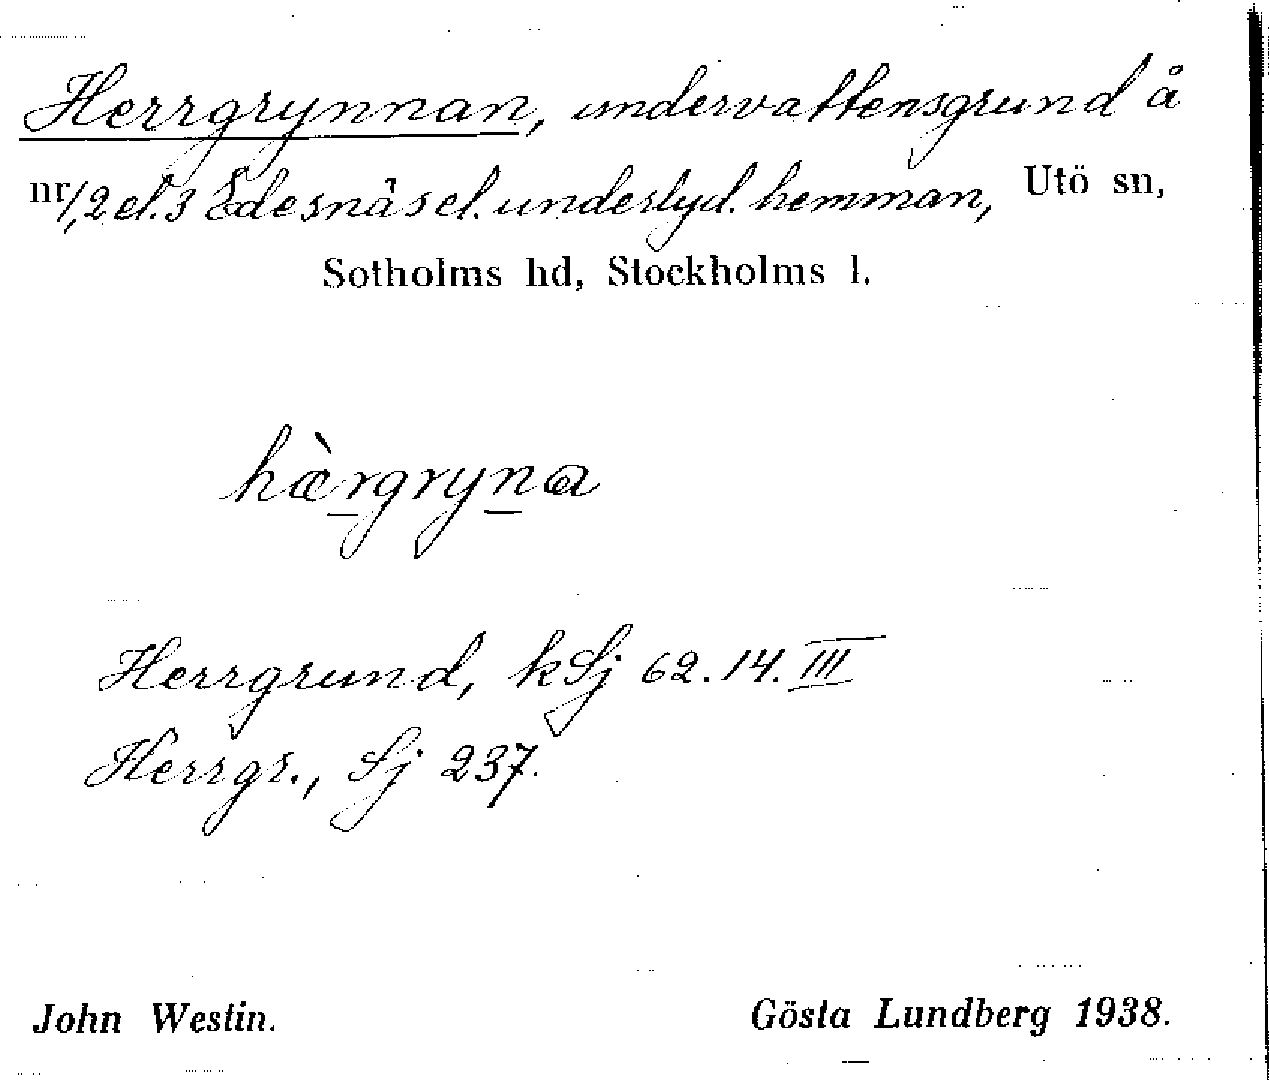 Herrgrynnan, undervattensgrund å
nr 1, 2 el. 3 Edesnäs el. underlyd. hemman, Utö sn,
Sotholms hd, Stockholms l.
hæ̀rgryna
Herrgrund, kSj 62.14.III
Herrgr., Sj 237.
John Westin. Gösta Lundberg 1938.